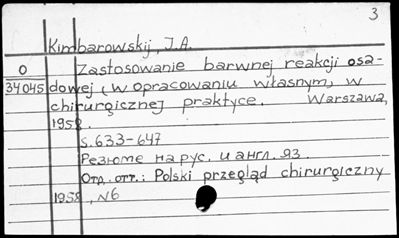 3
Kimbarowskij, J.A.
O Zastosowanie barwnej reakcji osa-
34045 dowej (w opracowaniu własnym) w
chirurgicznej praktyce. Warszawa,
1958.
s. 633-647
Резюме на рус. и англ. яз.
Отд. отт.: Polski przegląd chirurgiczny
1958, N6